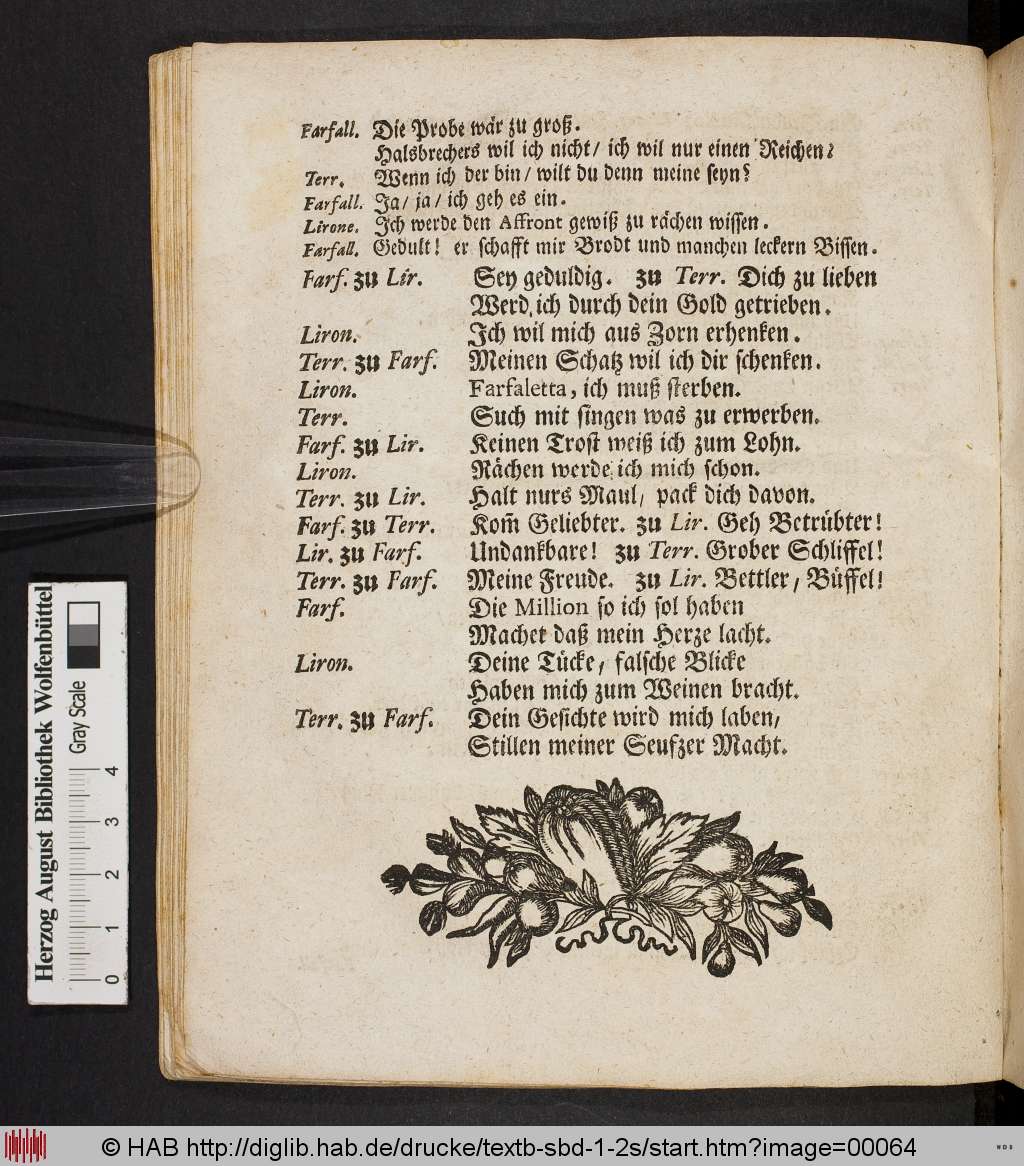 Farfall. Die Probe wär zu groß.
Halsbrechers wil ich nicht/ ich wil nur einen Reichen?
Terr. Wenn ich der bin/ wilt du denn meine seyn?
Farfall. Ja/ ja/ ich geh es ein.
Lirone. Ich werde den Affront gewiß zu rächen wissen.
Farfall. Gedult! er schafft mir Brodt und manchen leckern Bissen.
Farf. zu Lir. Sey geduldig. zu Terr. Dich zu lieben
Werd ich durch dein Gold getrieben.
Liron. Ich wil mich aus Zorn erhenken.
Terr. zu Farf. Meinen Schatz wil ich dir schenken.
Liron. Farfaletta, ich muß sterben.
Terr. Such mit singen was zu erwerben.
Farf. zu Lir. Keinen Trost weiß ich zum Lohn.
Liron. Rächen werde ich mich schon.
Terr. zu Lir. Halt nurs Maul/ pack dich davon.
Farf. zu Terr. Kom̃ Geliebter. zu Lir. Geh Betrübter!
Lir. zu Farf. Undankbare! zu Terr. Grober Schliffel!
Terr. zu Farf. Meine Freude. zu Lir. Bettler/ Büffel!
Farf. Die Million so ich sol haben
Machet daß mein Herze lacht.
Liron. Deine Tücke/ falsche Blicke
Haben mich zum Weinen bracht.
Terr. zu Farf. Dein Gesichte wird mich laben/
Stillen meiner Seufzer Macht.
Herzog August Bibliothek Wolfenbüttel
Gray Scale
0 1 2 3 4
© HAB http://diglib.hab.de/drucke/textb-sbd-1-2s/start.htm?image=00064